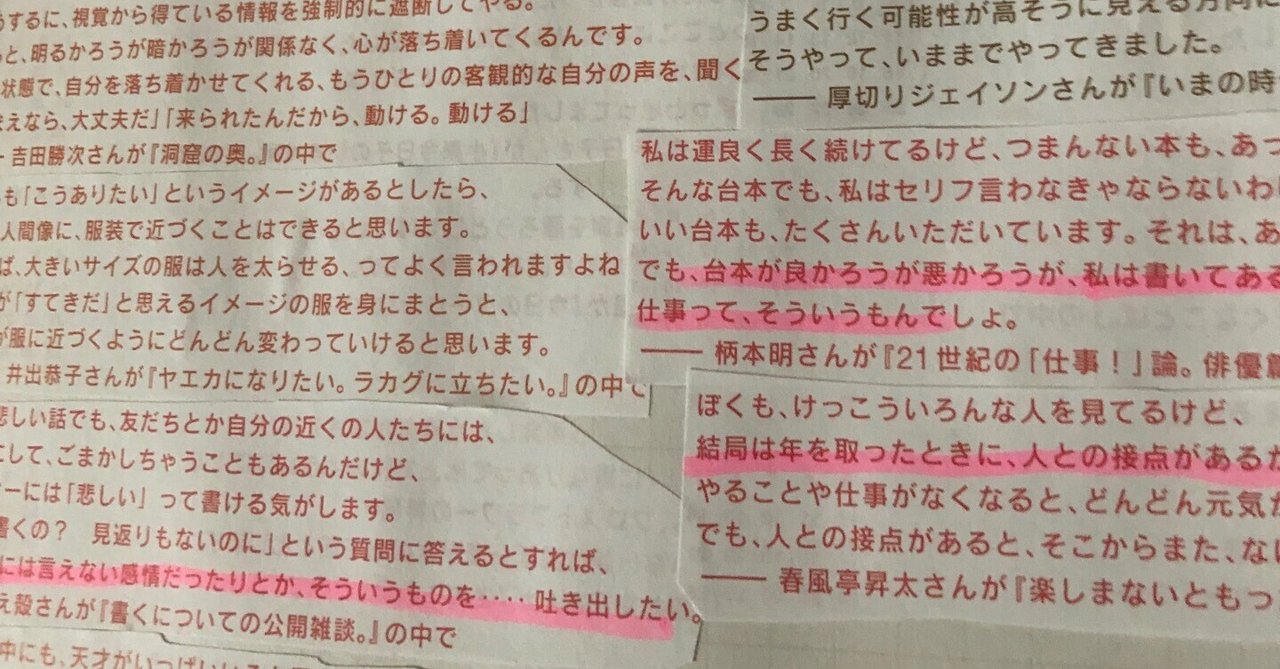 うするに、視覚から得ている情報を強制的に遮断してやる。
と、明るかろうが暗かろうが関係なく、心が落ち着いてくるんです。
状態で、自分を落ち着かせてくれる、もうひとりの客観的な自分の声を、聞く
えなら、大丈夫だ」「来られたんだから、動ける。動ける」
吉田勝次さんが『洞窟の奥。』の中で
も「こうありたい」というイメージがあるとしたら、
人間像に、服装で近づくことはできると思います。
ば、大きいサイズの服は人を太らせる、ってよく言われますよね
が「すてきだ」と思えるイメージの服を身にまとうと、
が服に近づくようにどんどん変わっていけると思います。
井出恭子さんが『ヤエカになりたい。ラカグに立ちたい。』の中で
悲しい話でも、友だちとか自分の近くの人たちには、
にして、ごまかしちゃうこともあるんだけど、
ーには「悲しい」って書ける気がします。
書くの？　見返りもないのに」という質問に答えるとすれば、
には言えない感情だったりとか、そういうものを‥‥吐き出したい。
え殻さんが『書くについての公開雑談。』の中で
中にも、天才がいっぱい
うまく行く可能性が高そうに見える方向に
そうやって、いままでやってきました。
―― 厚切りジェイソンさんが『いまの時
私は運良く長く続けてるけど、つまんない本も、あっ
そんな台本でも、私はセリフ言わなきゃならないわ
いい台本も、たくさんいただいています。それは、あ
でも、台本が良かろうが悪かろうが、私は書いてある
仕事って、そういうもんでしょ。
―― 柄本明さんが『21世紀の「仕事！」論。俳優篇
ぼくも、けっこういろんな人を見てるけど、
結局は年を取ったときに、人との接点があるか
やることや仕事がなくなると、どんどん元気が
でも、人との接点があると、そこからまた、なに
―― 春風亭昇太さんが『楽しまないともっ